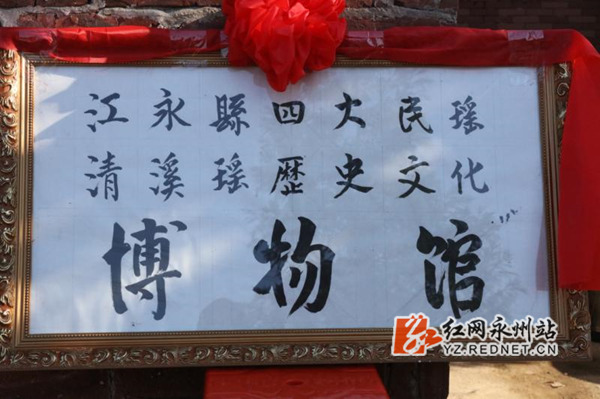 江永縣四大民瑶
清溪瑶歷史文化
博物馆
红网永州站
YZ.REDNET.CN